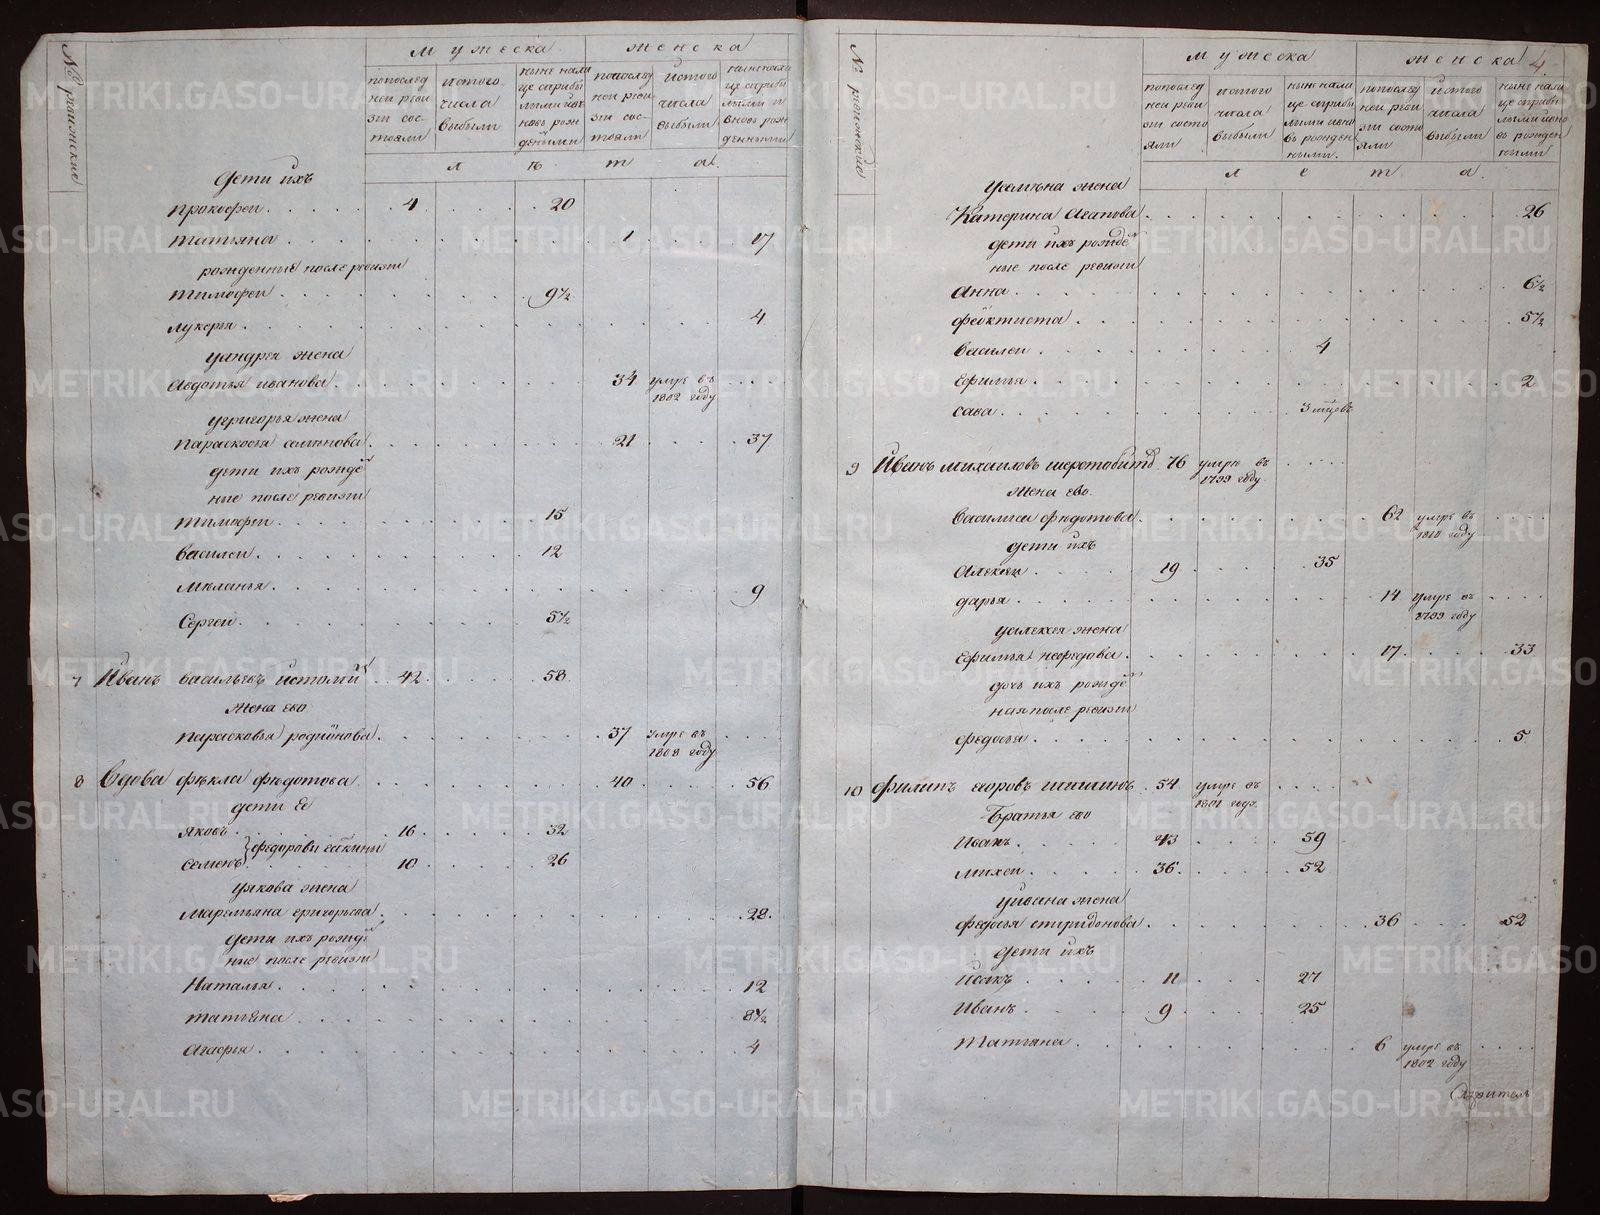 № ревижские
мужеска
женска
попослед
ней реви
зи сос-
тояли
истого
числа
выбыли
ныне нали
це сприбы
лыми ивн
новь рож
деными
попослед
ней реви-
зи сос-
тояли
истого
числа
выбыли
ныне нали
це сприбы
лыми и
вновь рож
денными
лѣта
Дети ихъ
Прокофеи 4 20
Татьяна 1 17
рожденные после ревизи
Тимофеи 9½
Лукерья 4
уандрея жена
Авдотья иванова 34 умре въ
1802 году
угригорья жена
Парасковья семенова 21 37
дети ихъ рожде
ные после ревизи
Тимофеи 15
Василеи 12
Меланья 9
Сергеи 5½
7 Иванъ васильевъ истоминъ 42 58
Жена ево
Парасковья родионова 37 умре въ
1808 году
8 Вдова фекла федотова 40 56
дети ее
Яковъ 16 32
федоровы
Семенъ 10 26
уякова жена
Маремьяна григорьева 28
дети ихъ рожде
ные после ревизи
Наталья 12
татьяна 8½
Агафья 4
№ ревижские
мужеска
женска 4
попослед
ней реви
зи состо
яли
истого
числа
выбыли
ныне нали
це сприбы
лыми ивно
въ рожден
ными.
попослед
ней реви
зи состо
яли
истого
числа
выбыли
ныне нали
це сприбы
лыми ивно
въ рожден
ными
лета
жена
Катерина Агапова 26
дети ихъ рожде
ные после ревизи
Анна 6½
феоктиста 5½
Василеи 4
Ефимья 2
сава 3 мцовъ
9 Иванъ михаиловъ 76 умре въ
1799 году
Жена ево.
Василиса федотова 62 умре въ
1810 году
дети ихъ
Алексеи 19 35
дарья 14 умре въ
1799 году
уалексея жена
Ефимья нефедова 17 33
дочь ихъ рожде
ная после ревизи
федосья 5
10 филипъ егоровъ шишинъ 54 умре въ
1801 году
Братья ево
Иванъ 43 59
михеи 36 52
уивана жена
федосья спиридонова 36 52
дети ихъ
Исакъ 11 27
Иванъ 9 25
Татьяна 6 умре въ
1802 году
METRIKI.GASO-URAL.RU